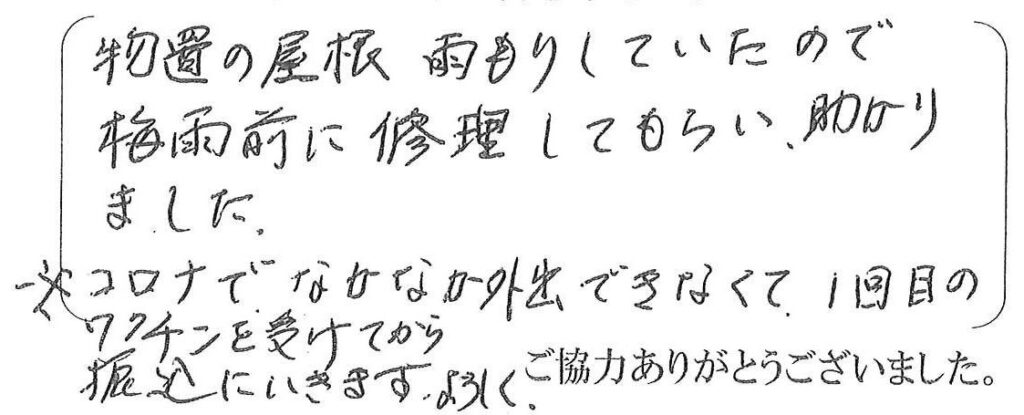 物置の屋根 雨もりしていたので
梅雨前に修理してもらい、助かり
ました。
※コロナでなかなか外出できなくて、1回目の
ワクチンを受けてから
振込にいきます。よろしく。
ご協力ありがとうございました。